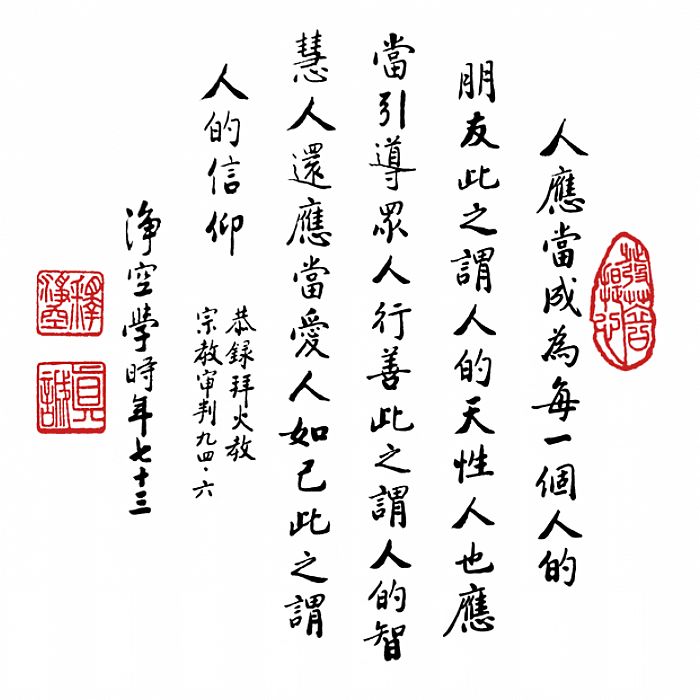 人應當成為每一個人的
朋友此之謂人的天性人也應
當引導眾人行善此之謂人的智
慧人還應當愛人如己此之謂
人的信仰
恭錄拜火教
宗教审判九四·六
淨空學時年七十三
釋淨空
真誠